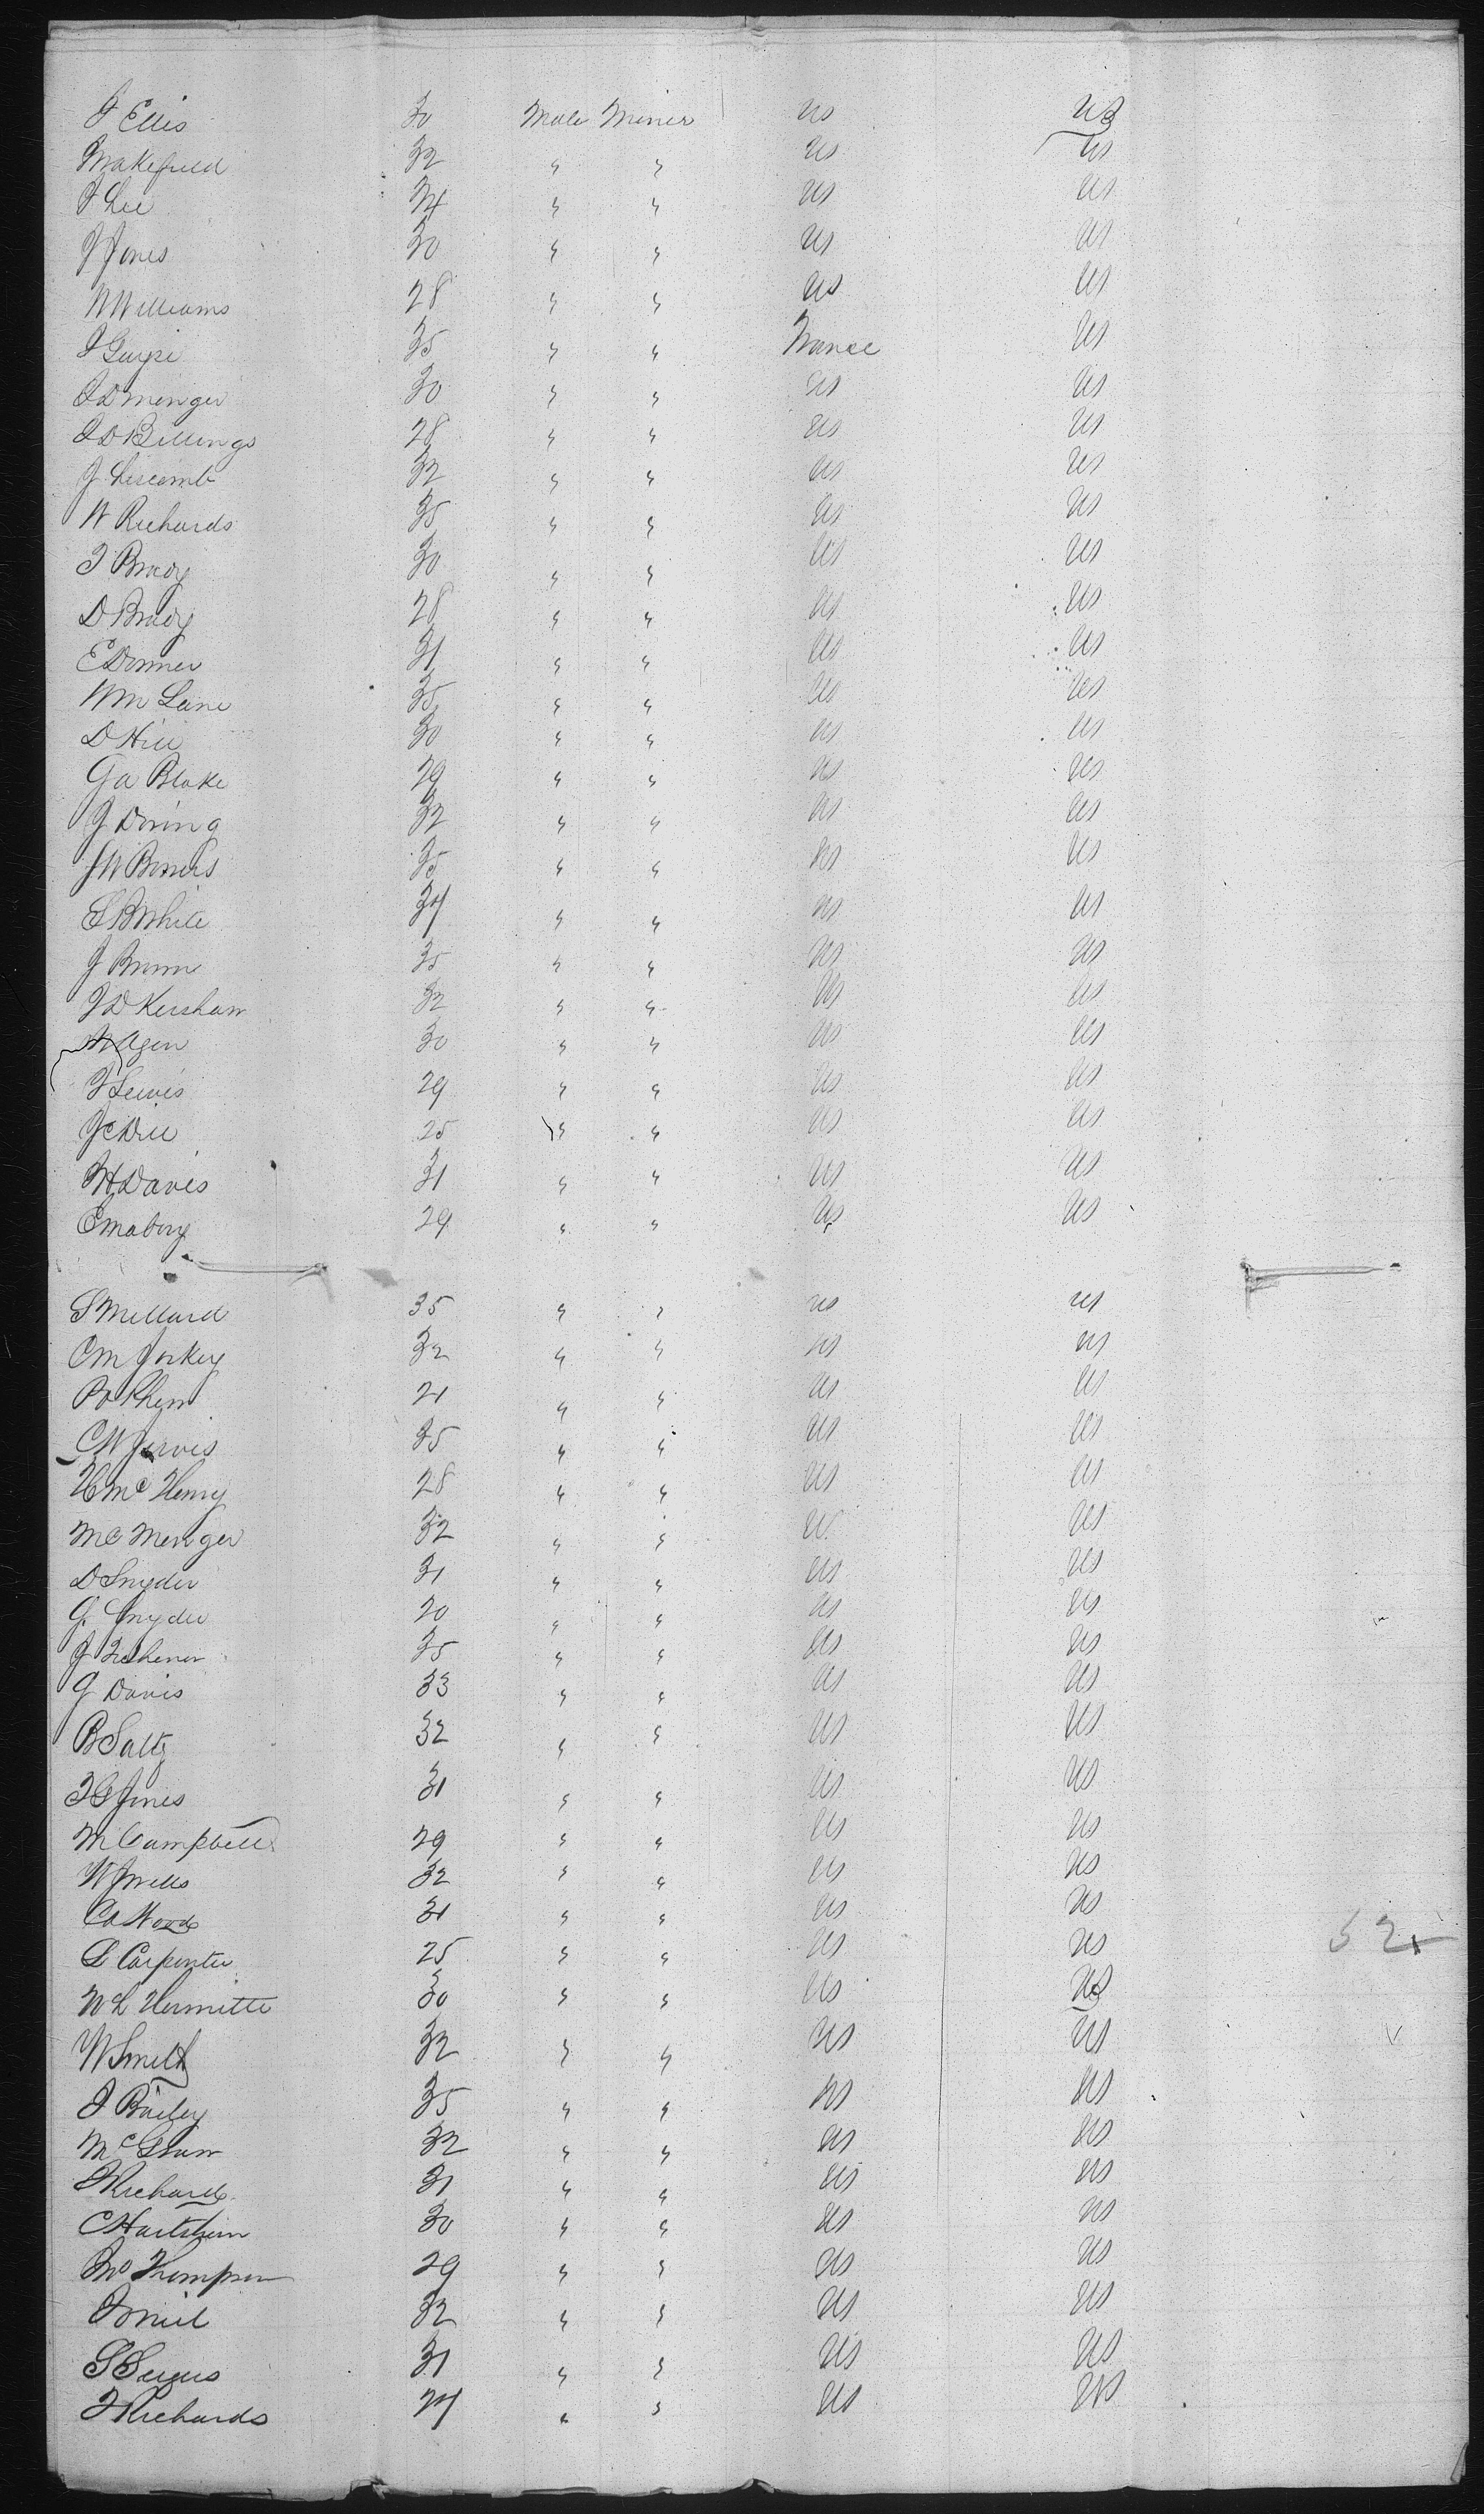 J Ellis 30 Male Miner US US
Wakefield 32 " " US US
J Lee 34 " " US US
J Jones 30 " " US US
W Williams 28 " " US US
J 35 " " France US
J D Menger 30 " " US US
J D Billings 28 " " US US
J Liscomb 32 " " US US
W Richards 35 " " US US
T Brady 30 " " US US
D Brady 28 " " US US
E Donner 31 " " US US
Wm Lane 35 " " US US
D Hill 30 " " US US
Ga Blake 29 " " US US
J Doring 32 " " US US
J W Bowers 35 " " US US
S B White 34 " " US US
J Brown 35 " " US US
J D Kershaw 32 " " US US
M Agen 30 " " US US
J Lewis 29 " " US US
J C Dill 25 " " US US
W H Davis 31 " " US US
E Mabery 29 " " US US
S Millard 35 " " US US
C M 32 " " US US
21 " " US US
C W Jarvis 35 " " US US
H Mc Henry 28 " " US US
Mc Menger 32 " " US US
D Snyder 31 " " US US
G Snyder 20 " " US US
J 35 " " US US
G Davis 33 " " US US
B Saltz 32 " " US US
T G Jones 31 " " US US
M Campbell 29 " " US US
W J Wells 32 " " US US
C A Woods 31 " " US US
L Carpenter 25 " " US US
52
W L Hermitte 30 " " US US
W Smith 32 " " US US
J Bailey 35 " " US US
McGraw 32 " " US US
J Richards 31 " " US US
C 30 " " US US
Thompson 29 " " US US
J Oneil 32 " " US US
S 31 " " US US
J Richards 24 " " US US